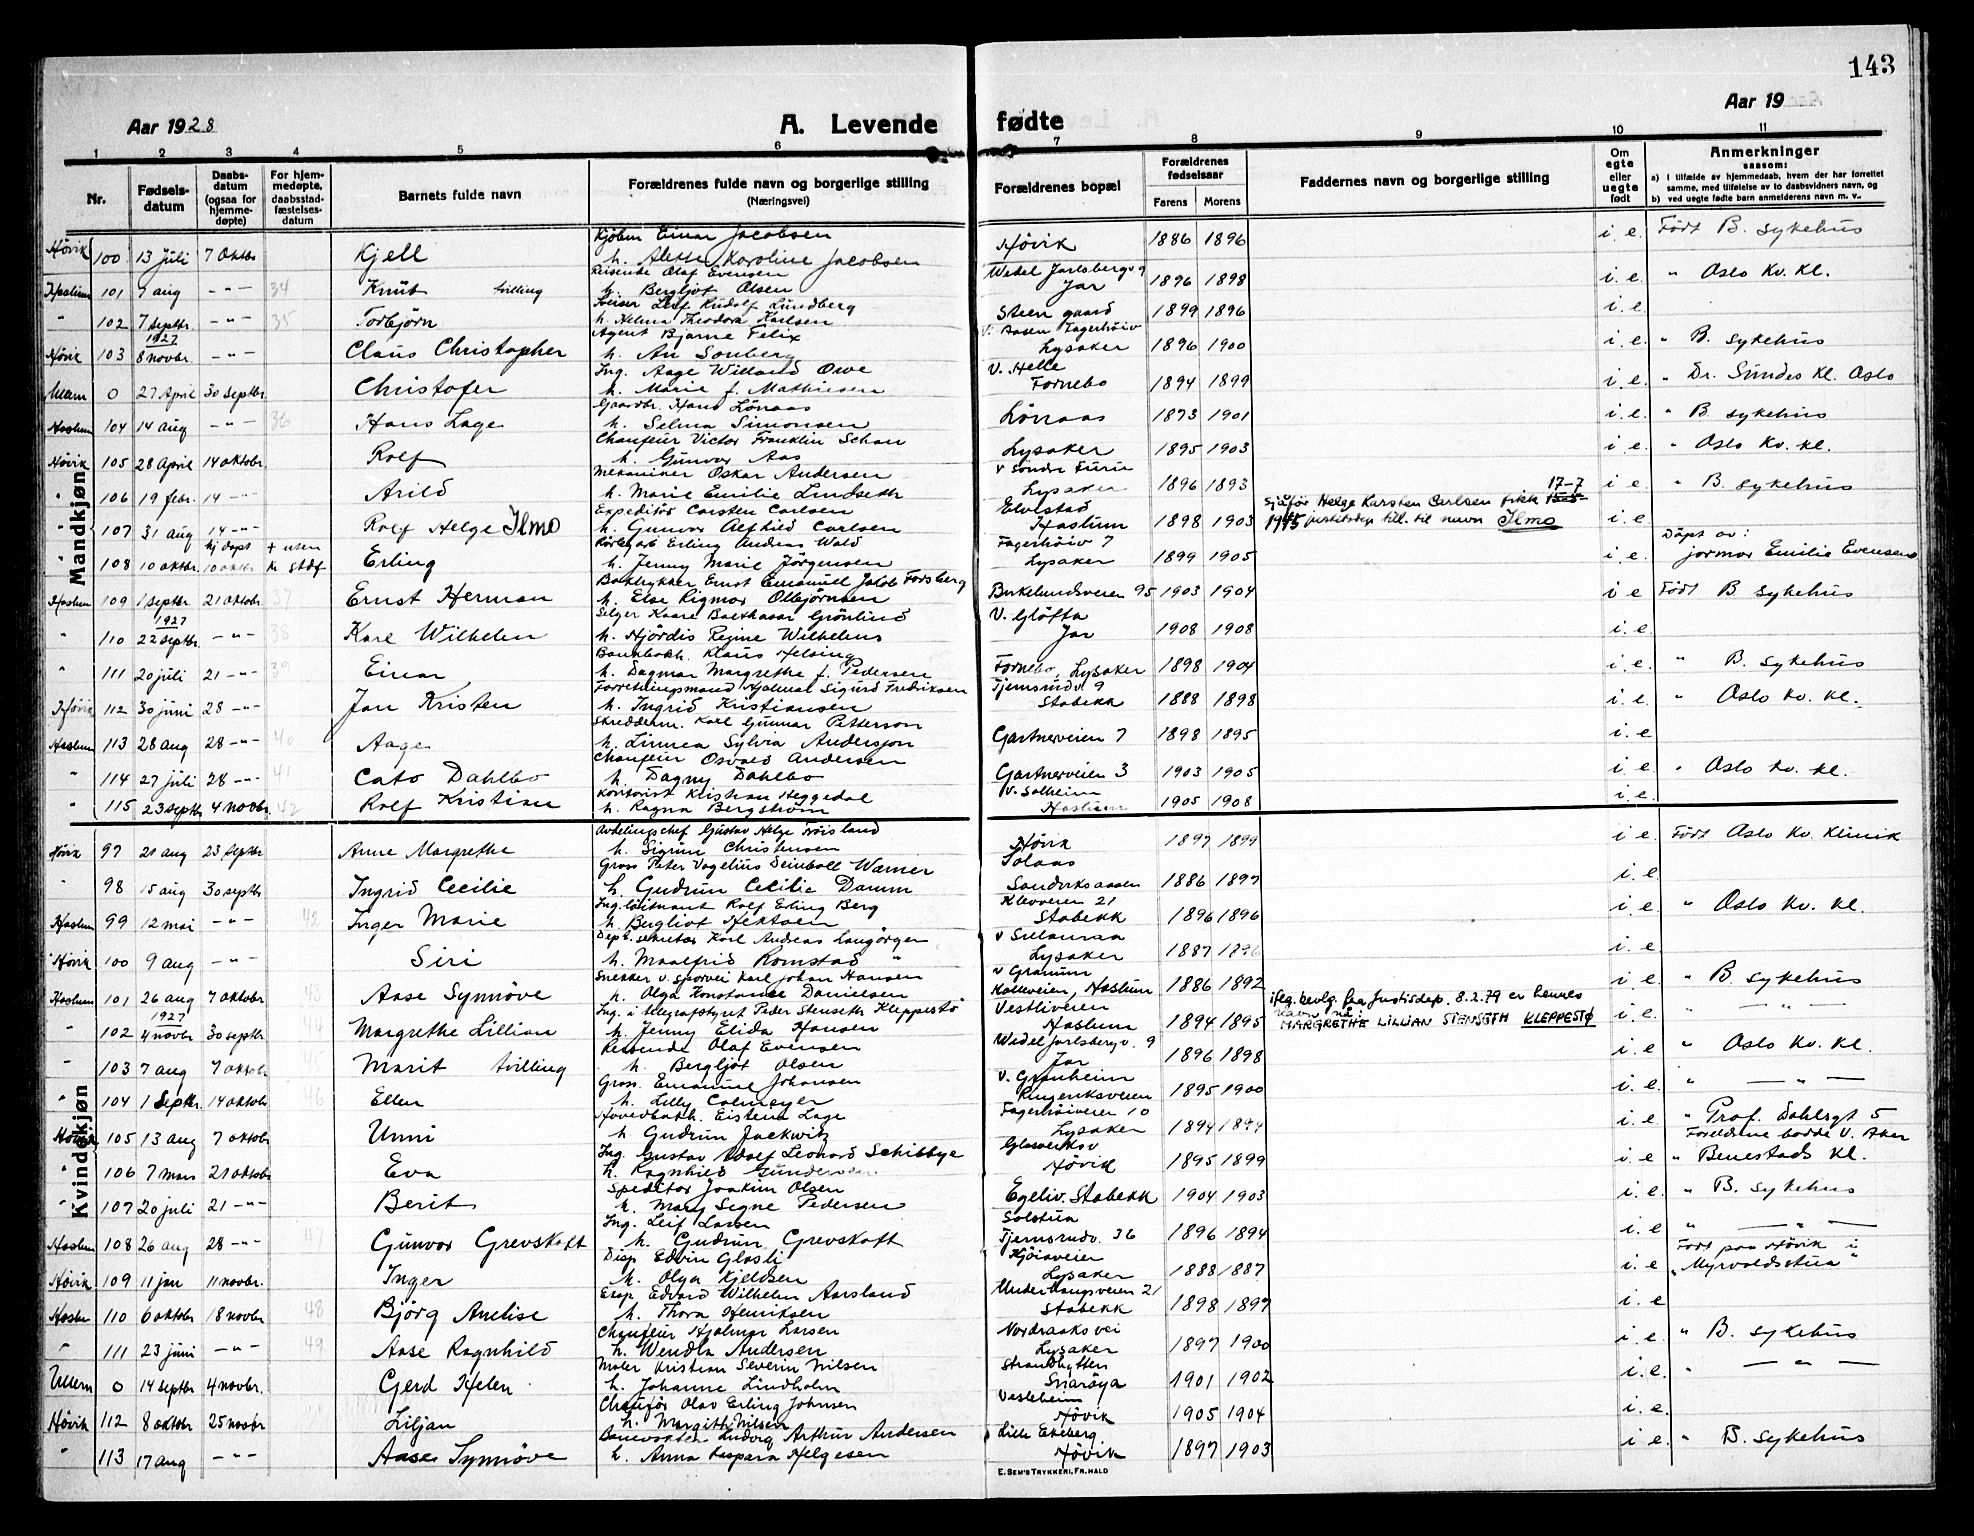 143
Aar 1928
A. Levende fødte
Aar 19
1 2 3 4 5 6 7 8 9 10 11
Nr. Fødselsdatum Daabsdatum (ogsaa for hjemmedøpte) For hjemmedøpte, daabsstadfæstelsesdatum Barnets fulde navn Forældrenes fulde navn og borgerlige stilling (Næringsvei) Forældrenes bopæl Forældrenes fødselsaar Farens Morens Faddernes navn og borgerlige stilling Om egte eller uegte født Anmerkninger saasom: a) I tilfælde av hjemmedaab, hvem der har forrettet samme, med tilføielse av to daabsvidners navn, og b) ved uegte fødte barn anmelderens navn m. v..
Mandkjøn
Høvik 100 13 juli 7 oktbr Kjell Kjøbm Einar Jacobsen h. Alette Karoline Jacobsen Høvik 1886 1896 i. e. Født B. sykehus
Haslum 101 7 aug -"- 34 Knut tvilling Reisende Olaf Evensen h. Bergljot Olsen Wedel Jarlsbergv 9 Jar 1896 1898 i. e. " Oslo Kv. Kl.
" 102 7 septbr -"- 35 Torbjørn Sveiser Leif Rudolf Lundberg h. Helma Theodora Karlsen Steen gaard 1899 1896 i. e.
Høvik 103 1927 8 novbr -"- Claus Christopher Agent Bjarne Felix h. Au Sonberg V. Aasen Fagerhøiv Lysaker 1896 1900 i. e. " B. sykehus
Ullern 0 27 April 30 septbr. Christofer Ing. Aage Willand Owe h. Marie f. Mathiesen V. Helle Fornebo 1894 1899 i. e. " Dr. Sundes Kl. Oslo
Haslum 104 14 aug -"- 36 Hans Lage Gaardbr. Hans Lønaas h. Selma Simonsen Lønaas 1873 1901 i. e. " B. sykehus
Høvik 105 28 April 14 oktobr. Rolf Chauffeur Victor Franklin Schau h. Gunvor Aas Lysaker 1895 1903 i. e. " Oslo Kv. Kl.
" 106 19 febr. 14 -"- Arild Mekaniker Oskar Andersen h. Marie Emilie Lindseth v Søndre Furu Lysaker 1896 1893 i. e. " B. sykehus
" 107 31 aug 14 -"- Rolf Helge Ilmo Expeditør Carsten Carlsen h. Gunvor Alfhild Carlsen Elvestad Haslum 1898 1903 sjåfør Helge Karsten Carlsen fikk 17-7 1945 justisdep till. til navn Ilmo i. e
" 108 10 oktbr. hj døpt 10 oktbr + uten k stdf Erling Rørlegarb Erling Andreas Wold h. Jenny Marie Jörgensen Fagerhøiv 7 Lysaker 1899 1905 i. e. Døpt av: jormor Emilie Evensen
Haslum 109 1 septbr 21 oktobr 37 Ernst Herman Boktrykker Ernst Emanuel Jakob Forsberg h. Else Rigmor Olbjørnsen Birkelundsveien 95 1903 1904 i e Født B sykehus
" 110 1927 22 septbr. -"- 38 Kare Wilhelm Selger Kaare Balthasar Grönlund h. Hjördis Regine Wilhelms V. Gløtta Jar 1908 1908 i. e.
" 111 20 juli 21 -"- 39 Einar Bankbokh. Klaus Helsing h. Dagmar Margrethe f. Pedersen Fornebo, Lysaker 1898 1904 i. e. " B. sykehus
Høvik 112 30 juni 28 -"- Jan Kristen Forretningsmand Hjalmar Sigurd Fredriksen h. Ingrid Kristiansen Tjernsrudv. 9 Stabekk 1888 1898 i. e. " Oslo Kv. Kl.
Haslum 113 28 aug 28 -"- 40 Aage Skredderm. Karl Gunnar Petterson h. Linnea Sylvia Andersson Gartnerveien 7 1898 1895 i. e
" 114 27 juli 28 -"- 41 Cato Dahlbo Chauffeur Osvald Andersen h. Dagny Dahlbo Gartnerveien 3 1903 1905 i. e " Oslo Kv. Kl.
" 115 23 septbr 4 novbr. 42 Rolf Kristian Kontorist Kristian Heggedal h. Ragna Bergström v. Solheim Haslum 1905 1908 i. e.
Kvindekjøn
Høvik 97 21 aug 23 septbr Anne Margrethe Avdelingschef Gustav Helge Frøisland h. Sigrun Christensen Høvik 1897 1899 i e. Født Oslo Kv. Klinik
" 98 15 aug 30 septbr Ingrid Cecilie Gross Peter Vogelius Deinboll Warner h. Gudrun Cecilie Damm Solaas 1886 1897 i. e.
Haslum 99 12 mai -"- 42 Inger Marie Ing. løitnant Rolf Erling Berg h. Bergliot Hektoen Kleivveien 21 Stabekk 1896 1896 i. e. " Oslo Kv. Kl.
Høvik 100 9 aug -"- Siri Dept. sekretær Karl Andreas Langörgen h. Maalfrid Romstad " Lysaker 1887 1896 i. e
Haslum 101 26 aug 7 oktobr 43 Aase Synnöve Snekker v. sporvei Karl Johan Hansen h. Olga Konstance Danielsen v Granum Kolleveien, Haslum 1886 1892 i. e " B. sykehus
" 102 1927 4 novbr 30 septbr 44 Margrethe Lillian Ing. i telegrafstyret Peder Stenseth Kleppestö h. Jenny Elida Hansen Vestliveien Haslum 1894 1895 iflg. bevlg. fra Justisdep. 8.2.79 er hennes navn nå: MARGRETHE LILLIAN STENSETH KLEPPESTØ i. e. " — " —
" 103 7 aug 7 oktobr. Marit tvilling Reisende Olaf Evensen h. Bergljot Olsen Wedel Jarlsbergv. 9 Jar 1896 1898 i. e " Oslo Kv. Kl.
" 104 1 Septbr. 14 oktobr 46 Ellen Gross. Emanuel Johansen h. Lilly Colmeyer v. Granheim Ringeriksveien 1895 1900 i. e " — " —
Høvik 105 13 aug 7 oktobr Unni Hovedbokh. Eistein Lage h. Gudrun Jackwitz Fagerhøiveien 10 Lysaker 1894 1894 i. e " Prof. Dahlsgt 5 Foreldrene bodde V. Aker
" 106 7 mars 21 oktobr Eva Ing. Gustav Adolf Leonard Schibbye h. Ragnhild Gundersen Glassverksv Høvik 1895 1899 i. e " Benestads Kl.
" 107 20 juli 21 -"- Berit Speditør Joakim Olsen h. Mary Signe Pedersen Egeliv. Stabekk 1904 1903 i. e. " B. sykehus
Haslum 108 26 aug 28 -"- 47 Gunvor Grevskott Ing. Leif Larsen h. Gudrun Grevskott Solstua Tjernsrudv. 36 1896 1894 i. e " — " —
Høvik 109 11 jan 11 novbr. Inger Disp Edvin Glosli h. Olga Kjeldsen Lysaker 1888 1887 i. e Født paa Høvik i „Myrvoldsstua"
Haslum 110 6 oktobr 18 novbr 48 Björg Anelise Eksp Edvard Wilhelm Aarsland h. Thora Henriksen Underhaugsveien 21 Stabekk 1898 1897 i. e
" 111 23 juni -"- 49 Aase Ragnhild Chauffeur Hjalmar Larsen h. Wendla Andersen Nordraaks vei Lysaker 1897 1900 i. e. " B. sykehus
Ullern 0 14 septbr 4 novbr. Gerd Helen Maler Kristian Severin Nilsen h. Johanne Lindholm Strandhytten Snarøya 1901 1902 i. e. " — " —
Høvik 112 8 oktobr 25 novbr Liljan Chauffør Olav Erling Johnsen h. Margith Nilsen Vesleheim Høvik 1905 1904 i. e.
" 113 17 aug -"- Aase Synnöve Banevokter Ludvig Arthur Andersen h. Anna Kaspara Helgesen Lille Ekeberg Høvik 1897 1903 i e. " B. sykehus
E. SEM'S TRYKKERI, FR.HALD